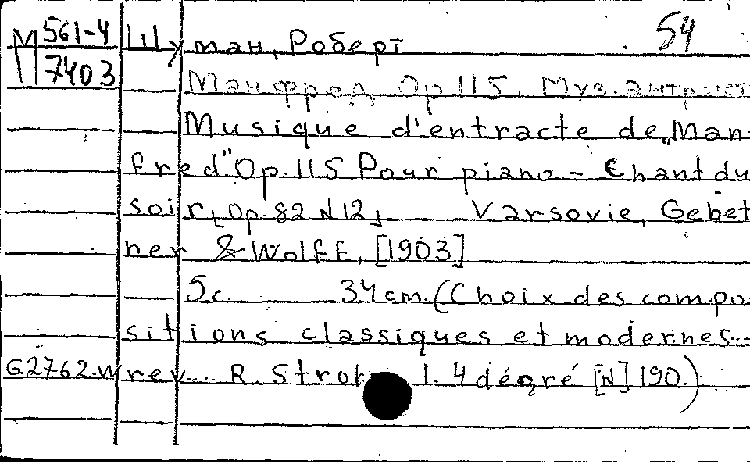 М 561-4 Шуман, Роберт 54
7403
Манфред Op 115. Муз. антракт
Musique d'entracte de „Man-
fred" Op. 115 Pour piano – Chant du
soir, Op. 82 N 12, Varsovie, Gebet
ner & Wolff, [1903]
5 c. 34 cm. (Choix des compo
sitions classiques et modernes...
G2762.w rev... R. Strob 1. 4 degré [N] 190.)